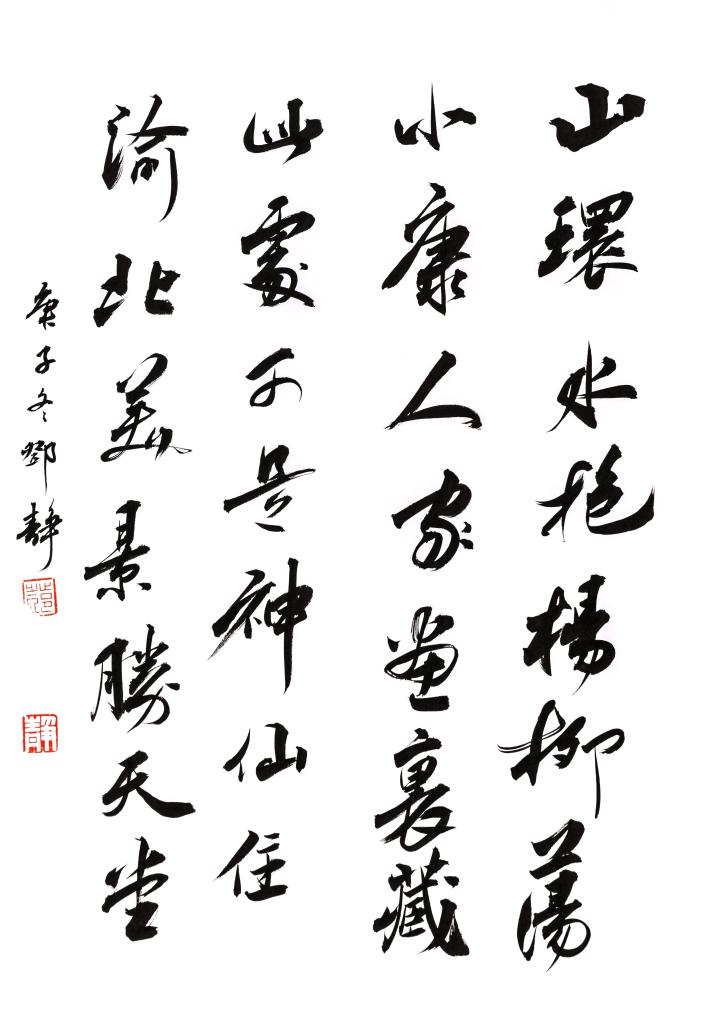 山環水抱楊柳蕩
小康人家畫裏藏
此處不是神仙住
渝北美景勝天堂
庚子冬鄧靜
鄧
靜